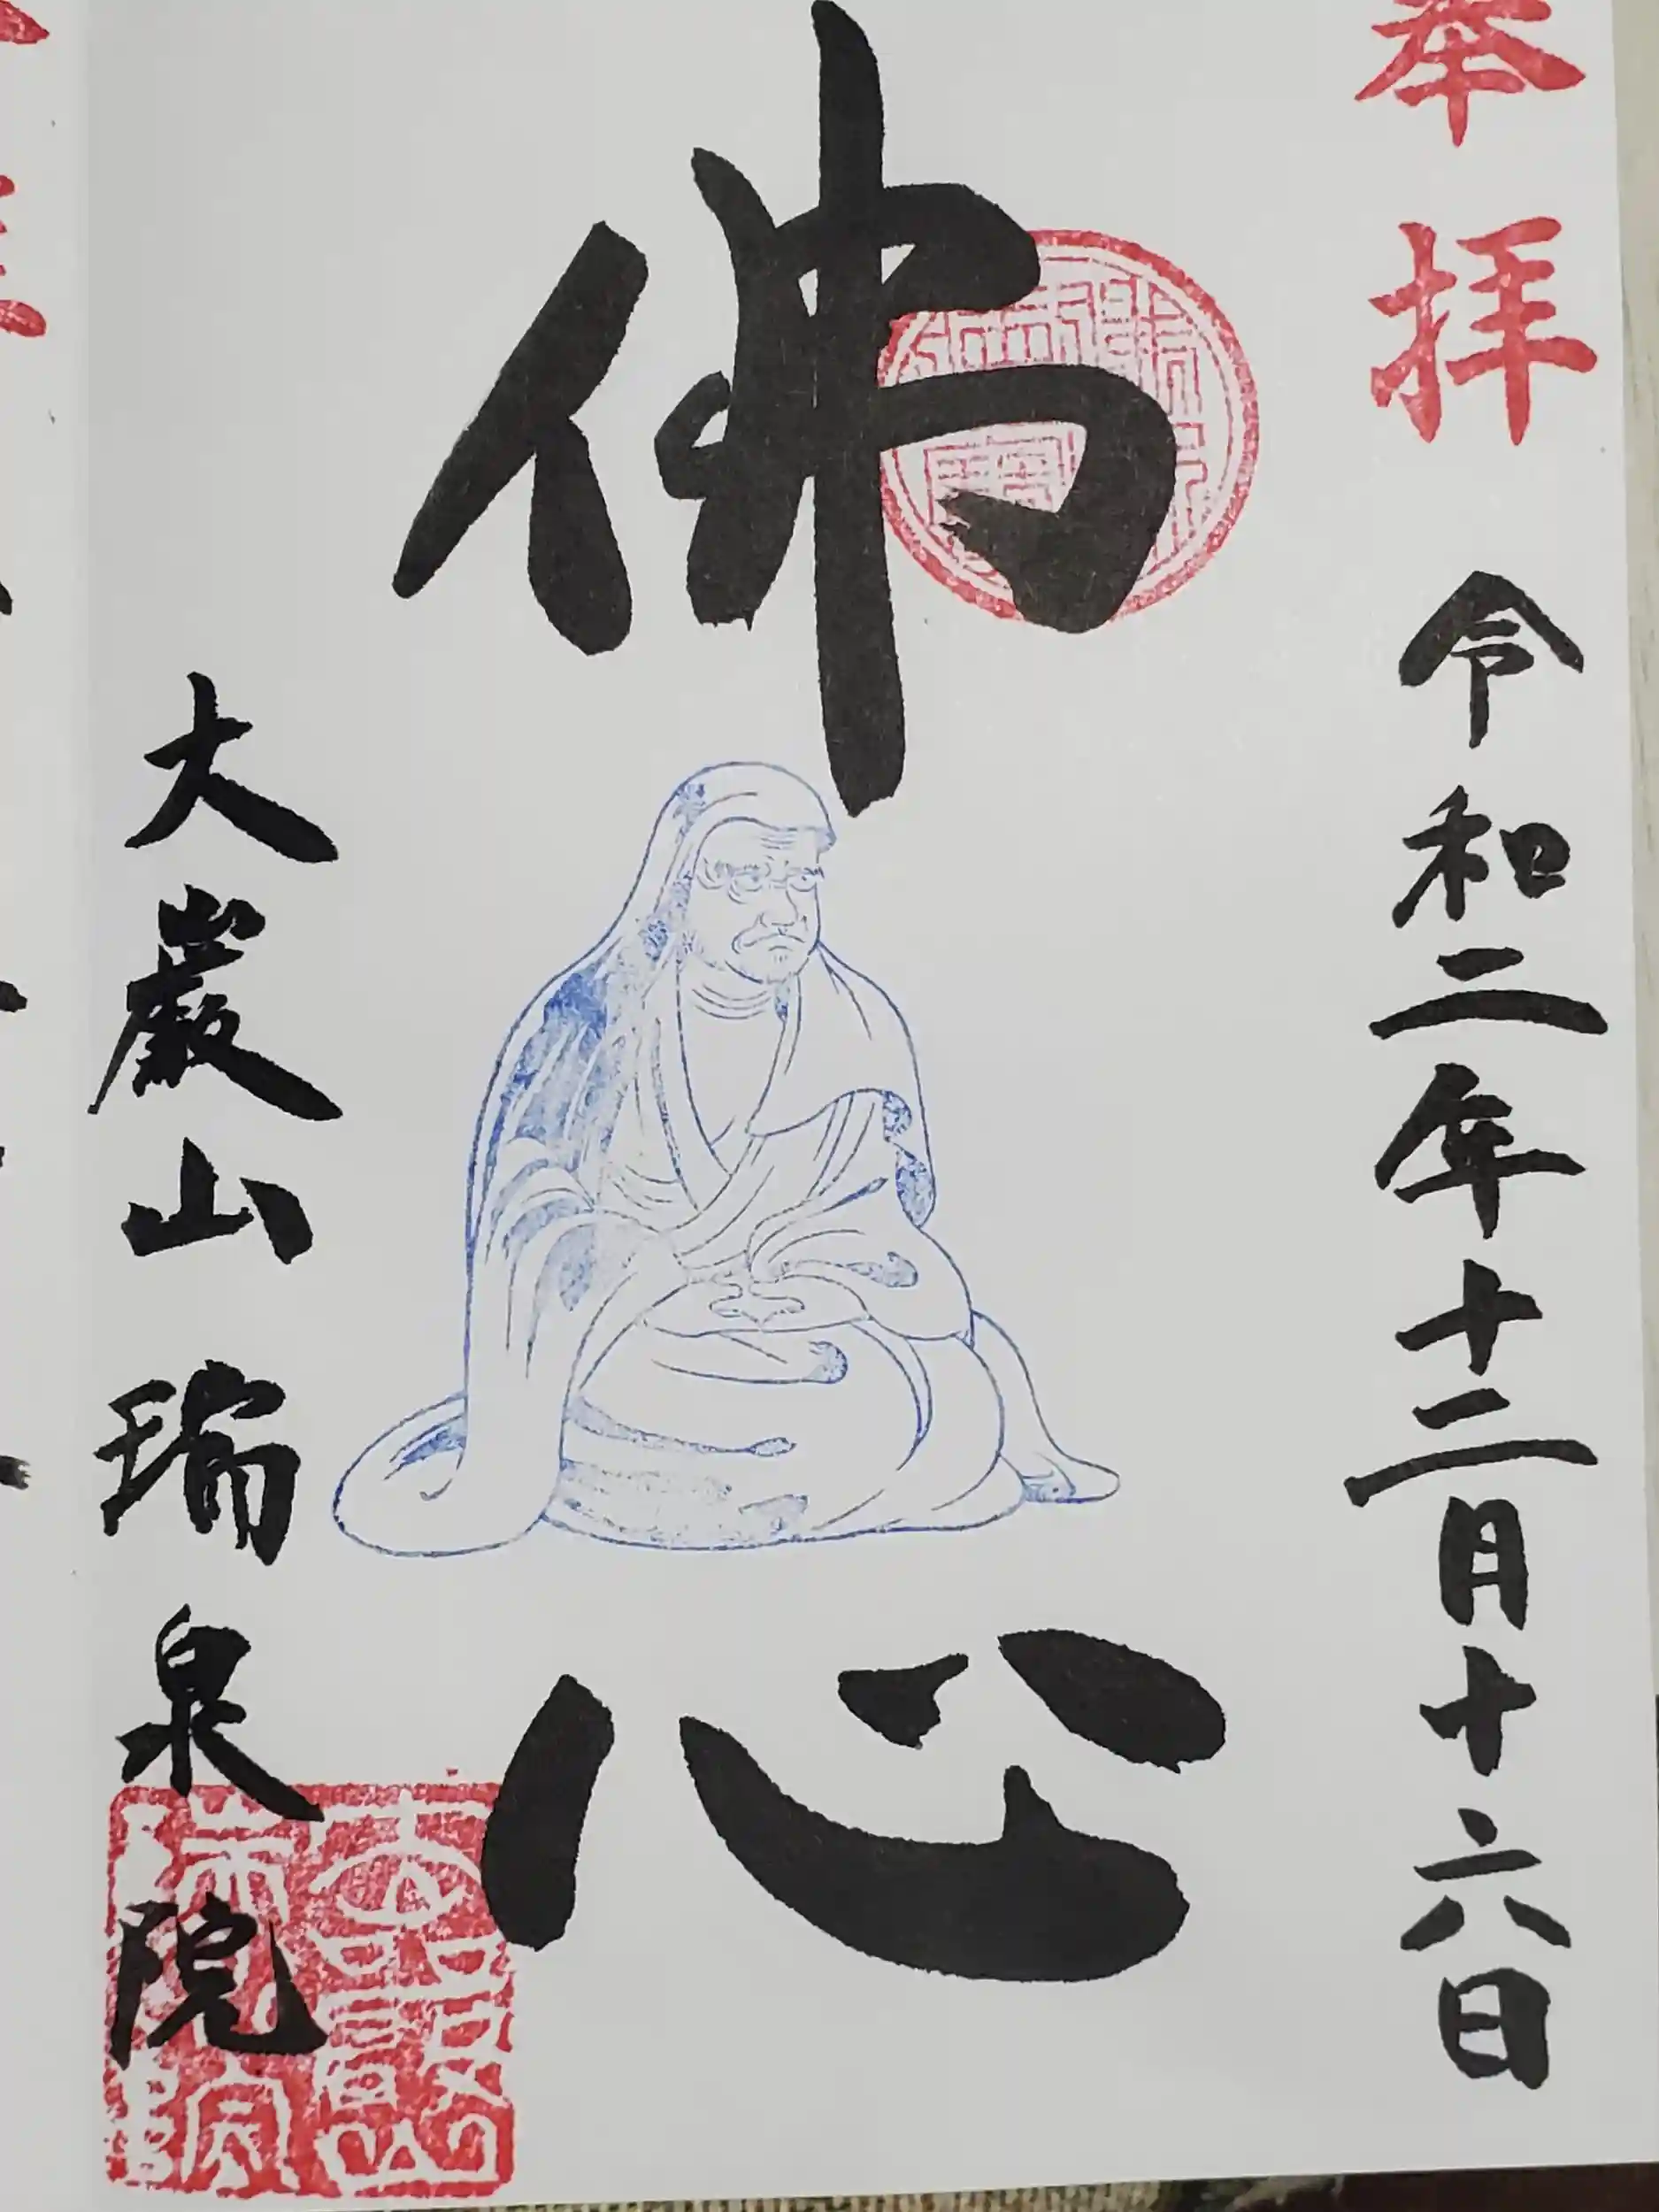 奉拝
令和二年十二月十六日
佛心
大巖山瑞泉院